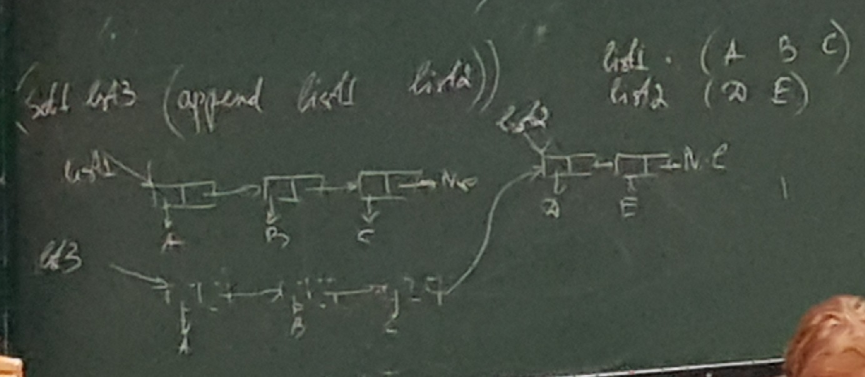 (setq list3 (append list1 list2))
list1 . (A B C)
list2 (D E)
list1
A B C
list2
D E
list3
A B C